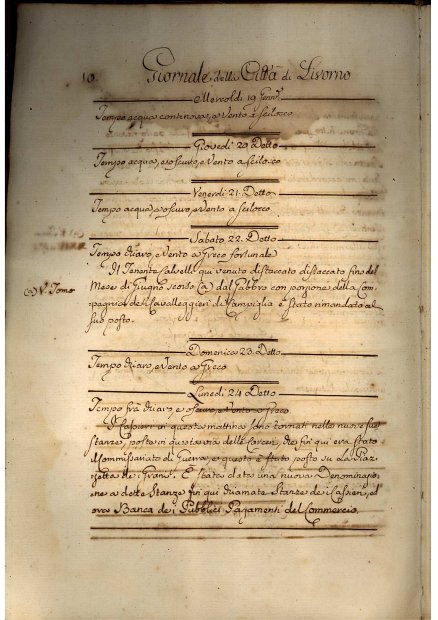 10.
Giornale della Città di Livorno
Mercoldì 19 Genn.º
Tempo acqua continova, e Vento a Scilocco
Giovedì 20. Detto
Tempo acqua, e oscuro, e Vento a Scilocco
Venerdì 21. Detto
Tempo acqua, e oscuro, e Vento a Scilocco
Sabato 22. Detto
Tempo chiaro, e Vento a Greco fortunale
Il Tenente Salvelli qui venuto distaccato fino del
(a) V. Tomo
Mese di Giugno scorso (a) dal Fabbro con porzione della Com-
pagnia de Cavalleggieri di Campiglia è stato rimandato al
suo posto.
Domenica 23. Detto
Tempo chiaro, e Vento a Greco
Lunedì 24 Detto
Tempo frà chiaro, e oscuro, e Vento a Greco
I Cassieri in questa mattina sono tornati nelle nuove sue
Stanze, poste in questa via delle Carceri, che fin qui era stato
Commissariato di Guerra, e questo è stato posto su La Piaz-
zetta de Grani. È stata data una nuova Denominazio-
ne a dette Stanze fin qui chiamate Stanze dei Cassieri, ed
ora Banca dei Pubblici Pagamenti del Commercio.